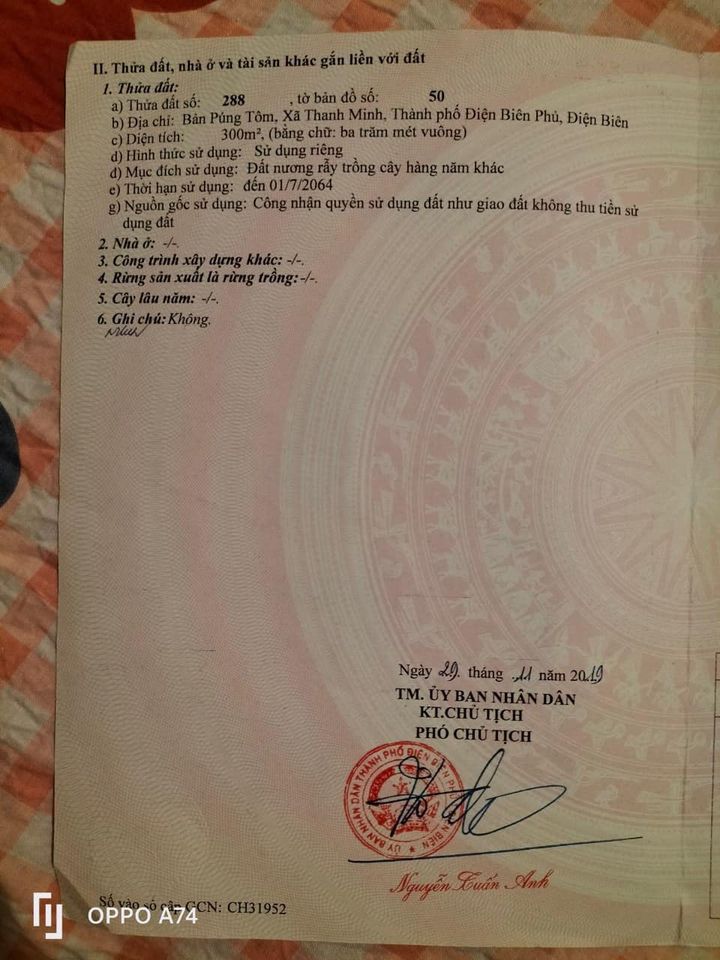 II. Thửa đất, nhà ở và tài sản khác gắn liền với đất
1. Thửa đất:
a) Thửa đất số: 288 , tờ bản đồ số: 50
b) Địa chỉ: Bản Púng Tôm, Xã Thanh Minh, Thành phố Điện Biên Phủ, Điện Biên
c) Diện tích: 300m², (bằng chữ: ba trăm mét vuông)
d) Hình thức sử dụng: Sử dụng riêng
đ) Mục đích sử dụng: Đất nương rẫy trồng cây hàng năm khác
e) Thời hạn sử dụng: đến 01/7/2064
g) Nguồn gốc sử dụng: Công nhận quyền sử dụng đất như giao đất không thu tiền sử
dụng đất
2. Nhà ở: -/-.
3. Công trình xây dựng khác: -/-.
4. Rừng sản xuất là rừng trồng: -/-.
5. Cây lâu năm: -/-.
6. Ghi chú: Không.
Ngày 29. tháng .11 năm 2019
TM. ỦY BAN NHÂN DÂN
KT.CHỦ TỊCH
PHÓ CHỦ TỊCH
ỦY BAN NHÂN DÂN THÀNH PHỐ ĐIỆN BIÊN PHỦ
Nguyễn Tuấn Anh
Số vào sổ cấp GCN: CH31952
OPPO A74